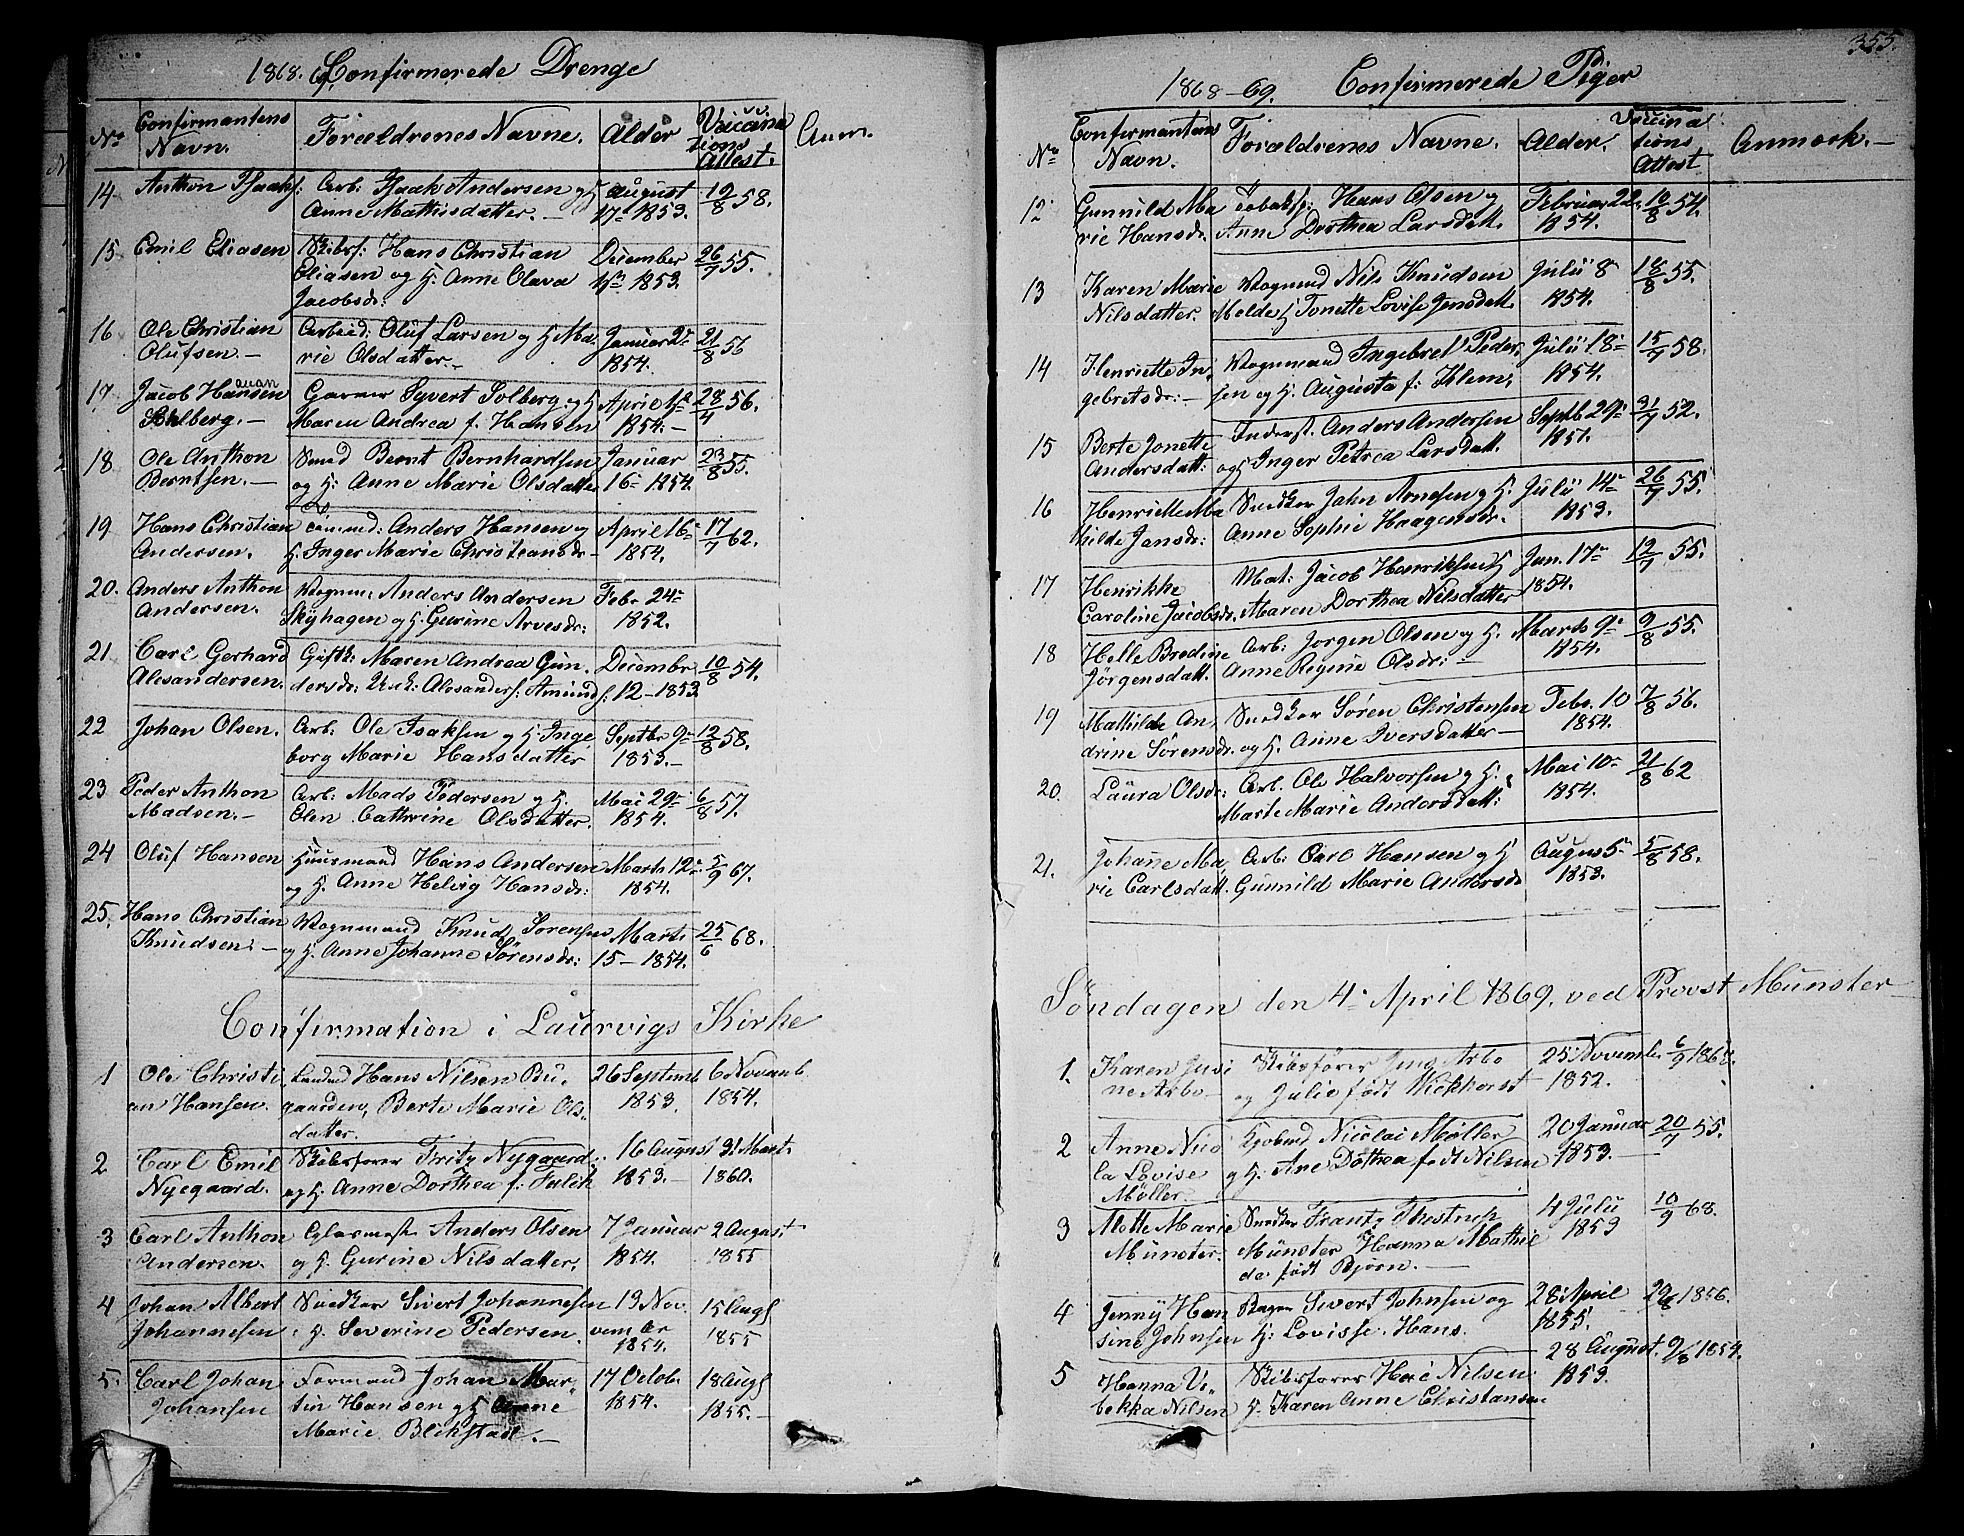 1868. Confirmerede Drenge
No Confirmantens Navn. Forældrenes Navne. Alder Vaccinations Attest. Anm.
14. Anthon Isaaks: Arb: Isaak Andersen og H August 12/8 58.
Anne Mathisdatter. — 17- 1853.
15 Emil Eliasen Skibsf: Hans Christian December 26/7 55.
Eliasen og H. Anne Olava 1853.
Jacobsdr:
16 Ole Christian Arbeid: Oluf Larsen og H Ma Januar 2- 21/8 56
Olufsen. — rie Olsdatter. — 1854.
17. Jacob Hansen Garver Syvert Solberg og H April 28/4 56.
Sohlberg. — Maren Andrea f. Hansen 1854. —
18 Ole Anthon Smed Bernt Bernhardsen Januar 23/8 55.
Berntsen. — og H: Anne Marie Olsdatter 16- 1854.
19 Hans Christian Anders Hansen og April 16- 17/7 62.
Andersen. H. Inger Marie Christiansdr- 1854.
20. Anders Anthon Anders Andersen Febr 24-
Andersen. og H. Gurine Arvesdr: 1852.
21 Carl Gerhard Gift: Maren Andrea Gun Decembr 10/8 54.
Alexandersen. dersdr: Alexanders: Amunds: 12-1853
22 Johan Olsen. Arb: Ole Isaksen og H. Inge Septbr 9- 12/8 58.
borg Marie Hansdatter 1853.-
23 Peder Anthon Arb: Mads Pedersen og H. Mai 29- 6/8 57.
Madsen. — Olen Cathrine Olsdatter. 1854.
24 Oluf Hansen Huusmand Hans Andersen Marts 12- 5/9 67.
og H. Anne Helvig Hansdr: 1854.
25. Hans Christian Vognmand Knud Sørensen Marts 25/6 68.
Knudsen: — og H. Anne Johanne Sørensdr: 15-1854.
Confirmation i Laurvigs Kirke
1 Ole Christi Hans Nilsen Bu, 26 Septemb 6 Novemb
an Hansen. gaarden, Berte Marie Ols, 1853. 1854.
datter.
2 Carl Emil Skibsfører Fritz Nygaard 16 August 31 Mart.
Nyegaard. og H. Anne Dorthea f: Falck 1853.- 1860.
3 Carl Anthon Glasmest Anders Olsen 7 Januar 2 August
Andersen. og H. Gurine Nilsdatter. 1854. 1855
4 Johan Albert Snedker Sivert Johannesen 13 No. 15 Augs
Johannesen H. Severine Pedersen. vember 1855
1854.
5. Carl Johan Formand Johan Mar, 17 Octob. 18 Augs
Johansen tin Hansen og H Anne 1854. 1855. —
Marie Blikstad. —
355.
1868-69. Confirmerede Piger
No Confirmantens Navn. Forældrenes Navne. Alder. Vaccinations Attest Anmærk. —
12 Gunnild Ma Hans Olsen og Februar 22- 10/8 54.
rie Hansdr. Anne Dorthea Larsdatt. 1854.
13 Karen Marie Vognmd Nils Knudsen Julii 8 18/8 55.
Nilsdatter. Melde H Tonette Lovise Jensdatt. 1854.
14 Henriette In, Vognmand Ingebret Peder, Julii 18- 15/7 58.
gebretsdr: — sen og H. Augusta f: Klem, 1854.
15 Berte Jonette Inderst. Anders Andersen Septb 29- 31/7 52.
Andersdatt: og H Inger Petrea Larsdatt. 1851.
16 Henriette Ma Snedker Jahn Arnesen og H. Julii 14- 26/7 55.
thilde Jansdr: Anne Sophie Haagensdr. 1853.
17 Henrikke Mat: Jacob Henriksen H Jan. 17- 12/7 55.
Caroline Jacobsdr. Maren Dorthea Nilsdatter 1854.
18 Helle Bredine Arb: Jørgen Olsen og H. Marts 9- 9/8 55.
Jørgensdatt. Anne Regine Olsdr: — 1854.
19 Mathilde An, Snedker Søren Christensen Febr. 10 7/8 56.
drine Sørensdr. og H. Anne Iversdatter — 1854.
20. Laura Olsdr: Arb. Ole Halvorsen og H. Mai 10- 21/8 62
Marte Marie Andersdatt: 1854.
21. Johanne Ma, Arb: Carl Hansen og H August 5- 5/8 58.
rie Carlsdatt. Gunnild Marie Andersdr 1853.
Søndagen den 4. April 1869, ved Provst Münster
1. Karen Juli Skibsfører Jens Arbo 25 Novemb. 6/9 1868.
ne Arbo — og Julie født Wickhorst — 1852.
2 Anne Nico Kjøbmd Nicolai Møller 20 Januar 20/7 55.
la Lovise og H. Ane Dothea født Nilsen 1853. —
Møller
3 Mette Marie Snedker Frantz Thestrup 4 Julii 10/9 68.
Münster. Münster Hanna Mathil 1853
da født Bjørn. —
4 Jenny Han Bager Sivert Johnsen og 28 April 1856.
sine Johnsen H: Lovisse. Hans. 1855.
5 Hanna Ve, Skibsfører Nilsen 28 August. 9/8 1854.
bekka Nilsen H. Karen Anne Christansen 1853.